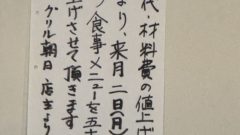 代・材料費の値上げ
なり、来月二日(月)
り食事メニューを五十
上げさせて頂きます
グリル朝日 店主より